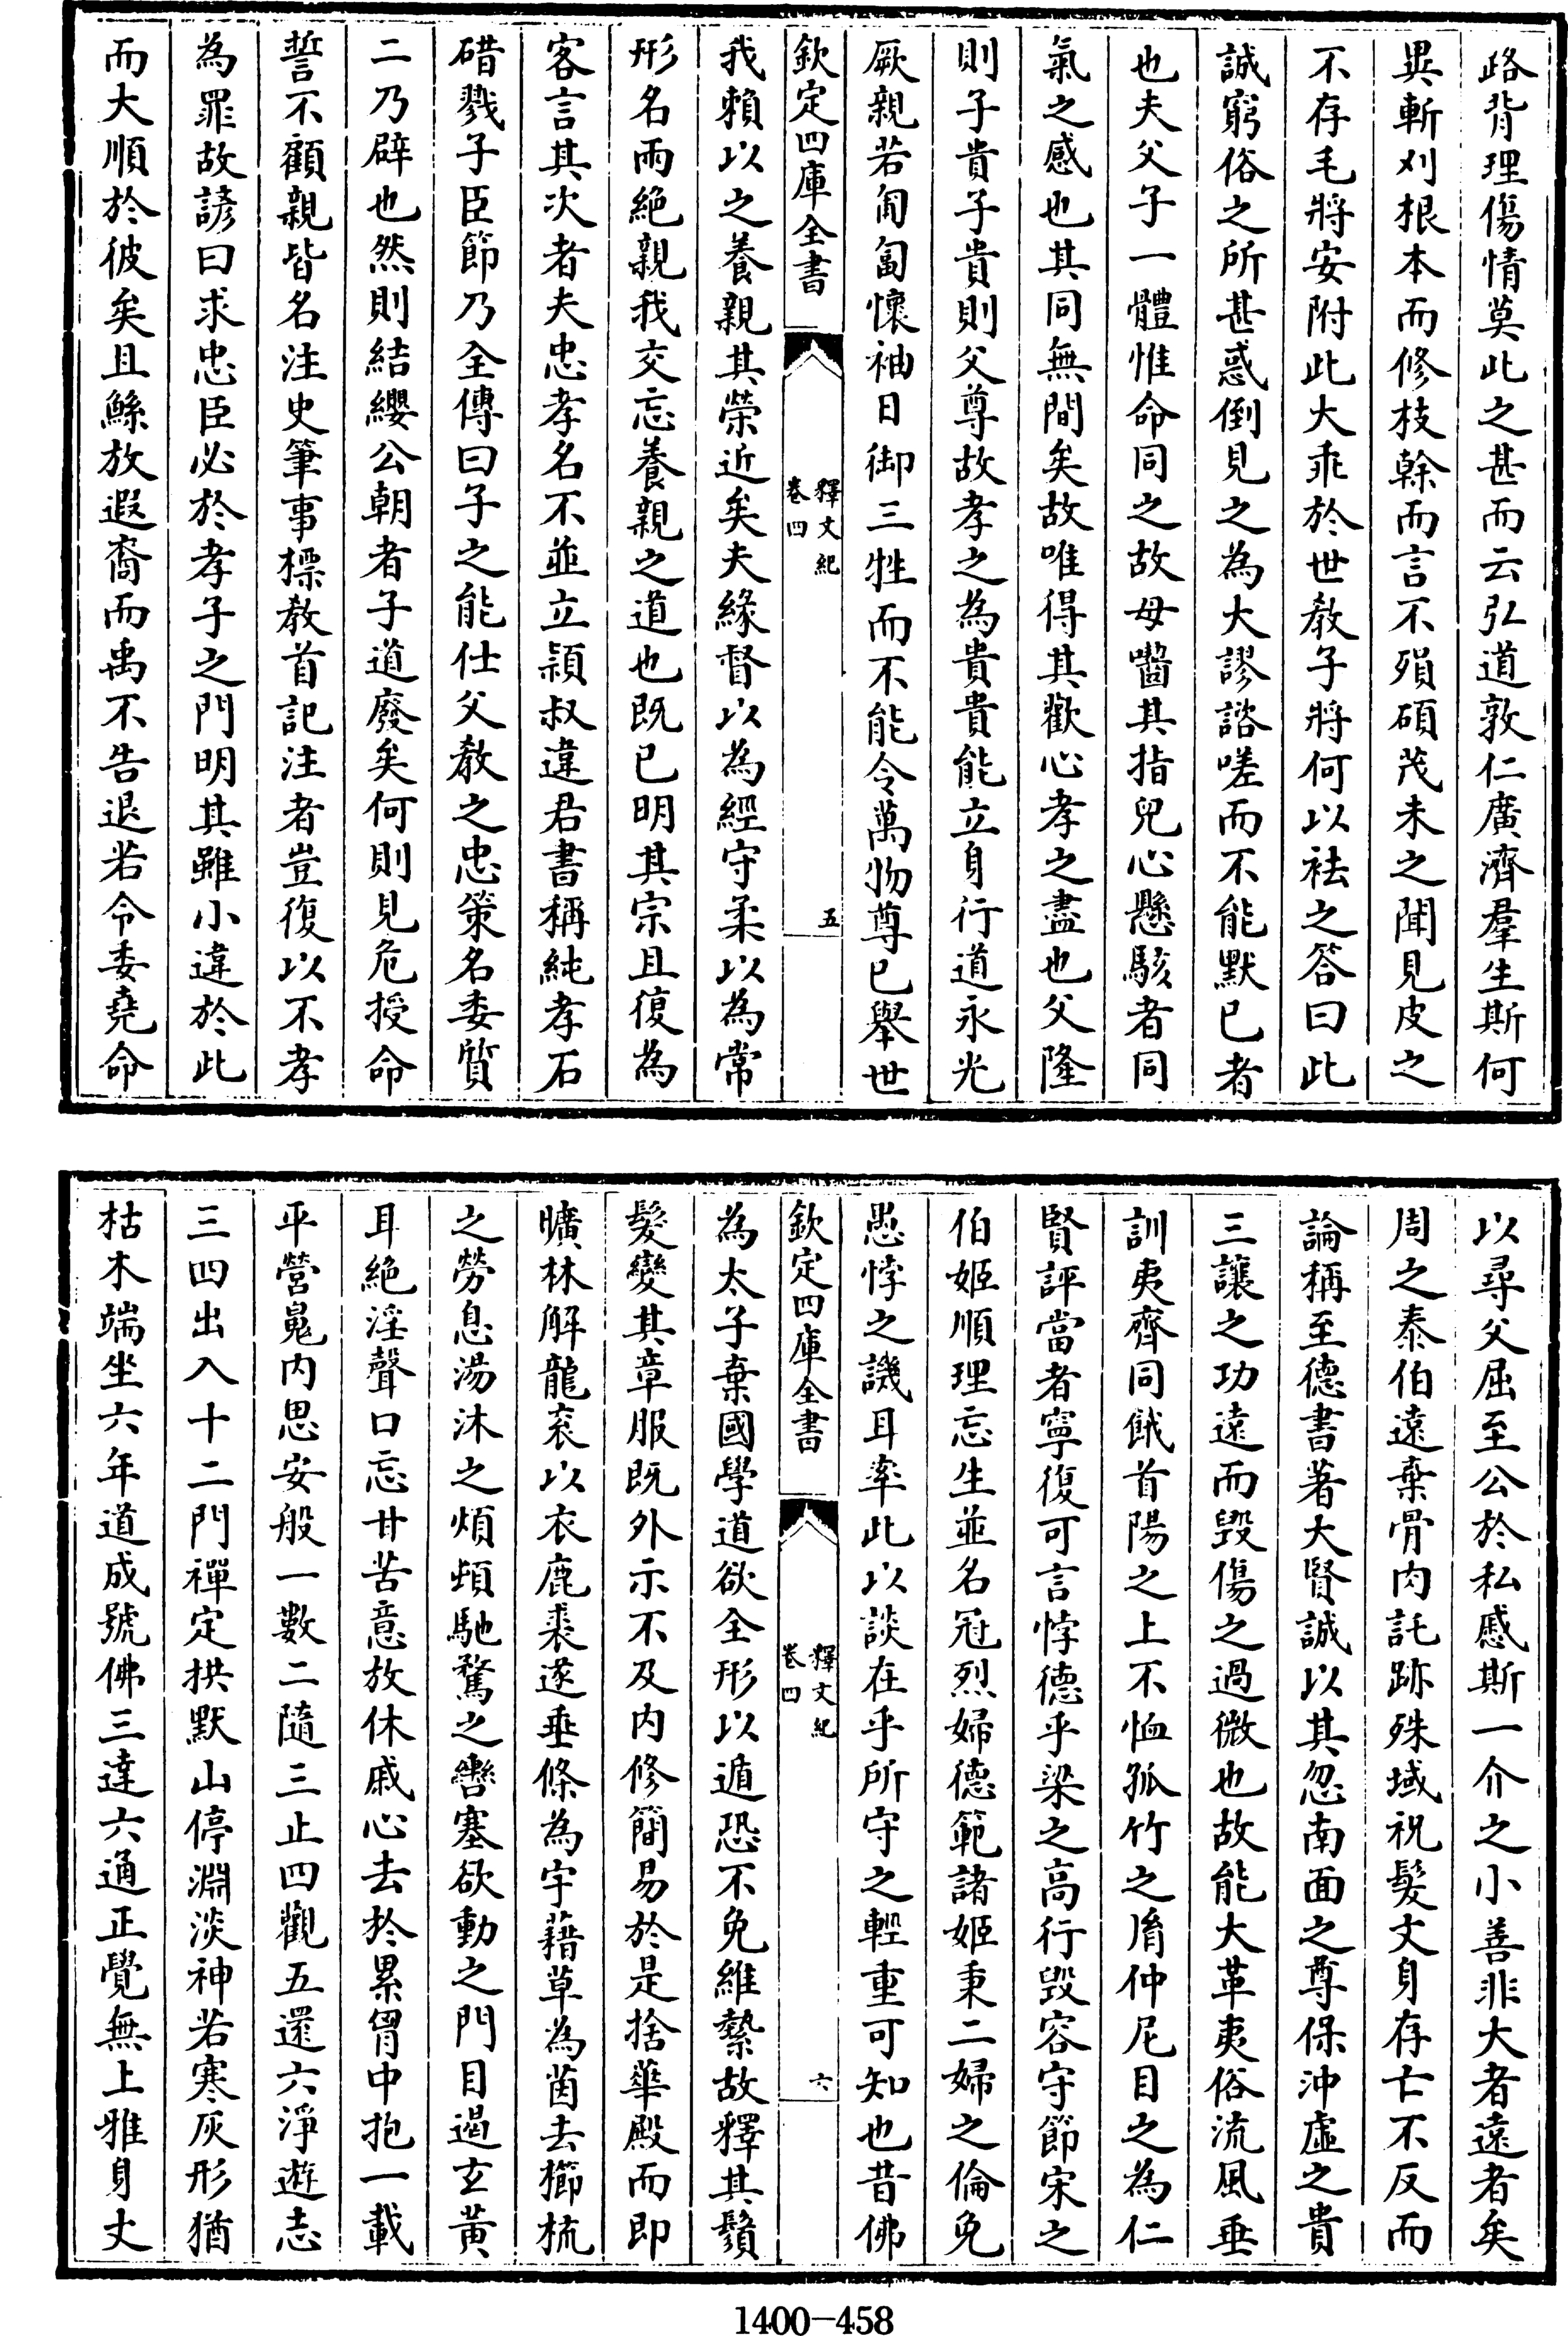 路背理傷情莫此之甚而云弘道敦仁廣濟羣生斯何
異斬刈根本而修枝榦而言不殞碩茂未之聞見皮之
不存毛將安附此大乖於世教子將何以袪之答曰此
誠窮俗之所甚惑倒見之為大謬諮嗟而不能默已者
也夫父子一體惟命同之故母嚙其指兒心懸駭者同
氣之感也其同無間矣故唯得其歡心孝之盡也父隆
則子貴子貴則父尊故孝之為貴貴能立身行道永光
厥親若匍匐懷袖日御三牲而不能令萬物尊已舉世
欽定四庫全書
釋文紀
卷四
五
我賴以之養親其榮近矣夫緣督以為經守柔以為常
形名兩絕親我交忘養親之道也既已明其宗且復為
客言其次者夫忠孝名不並立潁叔違君書稱純孝石
碏戮子臣節乃全傳曰子之能仕父教之忠策名委質
二乃辟也然則結纓公朝者子道廢矣何則見危授命
誓不顧親皆名注史筆事標教首記注者豈復以不孝
為罪故諺曰求忠臣必於孝子之門明其雖小違於此
而大順於彼矣且鯀放遐裔而禹不告退若令委堯命
以尋父屈至公於私慼斯一介之小善非大者遠者矣
周之泰伯遠棄骨肉託跡殊域祝髮文身存亡不反而
論稱至德書著大賢誠以其忽南面之尊保沖虛之貴
三讓之功遠而毀傷之過微也故能大革夷俗流風垂
訓夷齊同餓首陽之上不恤孤竹之胤仲尼目之為仁
賢評當者寧復可言悖德乎梁之高行毀容守節宋之
伯姬順理忘生並名冠烈婦德範諸姬秉二婦之倫免
愚悖之譏耳率此以談在乎所守之輕重可知也昔佛
欽定四庫全書
釋文紀
卷四
六
為太子棄國學道欲全形以遁恐不免維縶故釋其鬚
髮變其章服既外示不及內修簡易於是捨華殿而即
曠林解龍衮以衣鹿裘遂垂條為宇藉草為茵去櫛梳
之勞息湯沐之煩頓馳騖之轡塞欲動之門目遏玄黃
耳絕淫聲口忘甘苦意放休戚心去於累胷中抱一載
平營䰟內思安般一數二隨三止四觀五還六淨遊志
三四出入十二門禪定拱默山停淵淡神若寒灰形猶
枯木端坐六年道成號佛三達六通正覺無上雅身丈
1400-458